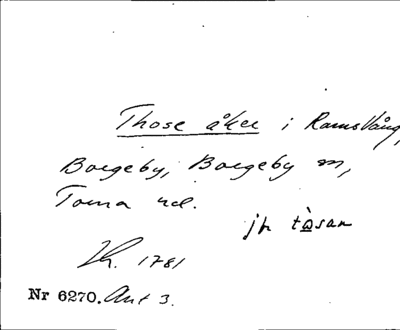 Those åker i Ramsvång,
Borgeby, Borgeby sn,
Torna hd.
jfr tåsan
Th. 1781
Nr 6270. Ant 3.